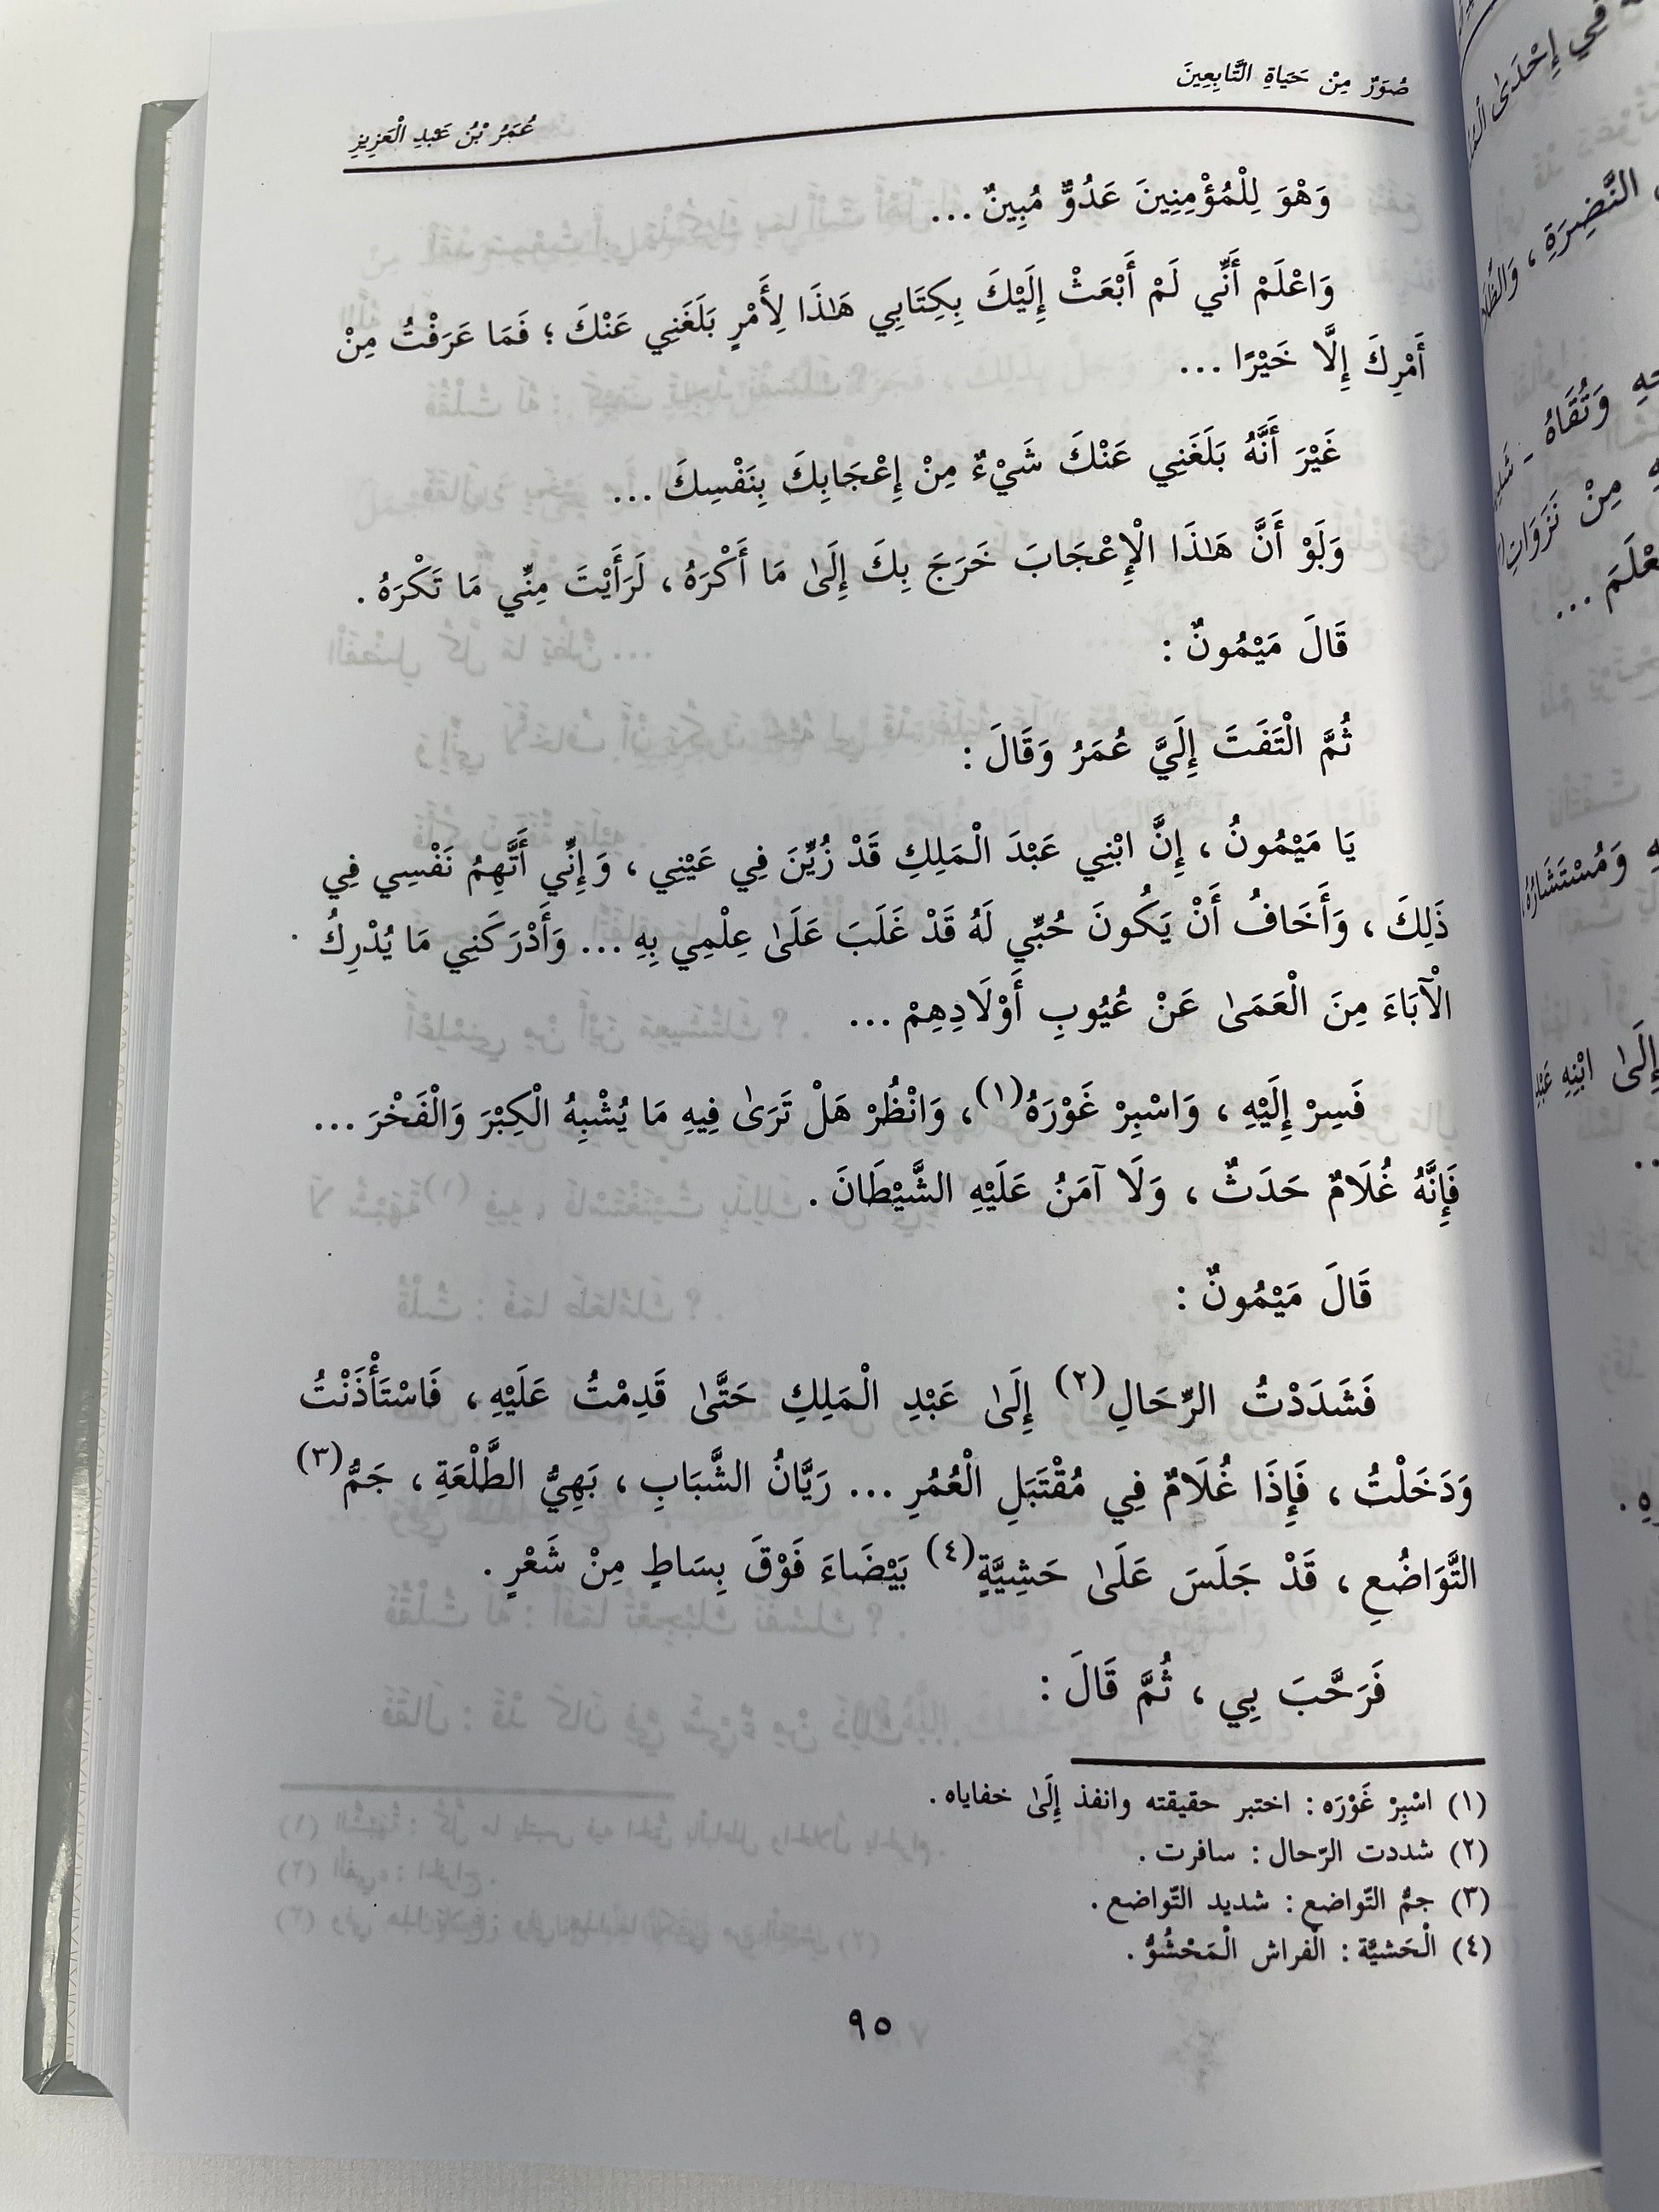 صُوَرٌ مِنْ حَيَاةِ التَّابِعِينَ
عُمَرُ بْنُ عَبْدِ الْعَزِيزِ
وَهْوَ لِلْمُؤْمِنِينَ عَدُوٌّ مُبِينٌ ...
وَاعْلَمْ أَنِّي لَمْ أَبْعَثْ إِلَيْكَ بِكِتَابِي هَٰذَا لِأَمْرٍ بَلَغَنِي عَنْكَ ؛ فَمَا عَرَفْتُ مِنْ
أَمْرِكَ إِلَّا خَيْرًا ...
غَيْرَ أَنَّهُ بَلَغَنِي عَنْكَ شَيْءٌ مِنْ إِعْجَابِكَ بِنَفْسِكَ ...
وَلَوْ أَنَّ هَٰذَا الْإِعْجَابَ خَرَجَ بِكَ إِلَىٰ مَا أَكْرَهُ ، لَرَأَيْتَ مِنِّي مَا تَكْرَهُ .
قَالَ مَيْمُونٌ :
ثُمَّ الْتَفَتَ إِلَيَّ عُمَرُ وَقَالَ :
يَا مَيْمُونُ ، إِنَّ ابْنِي عَبْدَ الْمَلِكِ قَدْ زُيِّنَ فِي عَيْنِي ، وَإِنِّي أَتَّهِمُ نَفْسِي فِي
ذَلِكَ ، وَأَخَافُ أَنْ يَكُونَ حُبِّي لَهُ قَدْ غَلَبَ عَلَىٰ عِلْمِي بِهِ ... وَأَدْرَكَنِي مَا يُدْرِكُ
الْآبَاءَ مِنَ الْعَمَىٰ عَنْ عُيُوبِ أَوْلَادِهِمْ ...
فَسِرْ إِلَيْهِ ، وَاسْبِرْ غَوْرَهُ(١)، وَانْظُرْ هَلْ تَرَىٰ فِيهِ مَا يُشْبِهُ الْكِبْرَ وَالْفَخْرَ ...
فَإِنَّهُ غُلَامٌ حَدَثٌ ، وَلَا آمَنُ عَلَيْهِ الشَّيْطَانَ .
قَالَ مَيْمُونٌ :
فَشَدَدْتُ الرِّحَالِ(٢) إِلَىٰ عَبْدِ الْمَلِكِ حَتَّىٰ قَدِمْتُ عَلَيْهِ ، فَاسْتَأْذَنْتُ
وَدَخَلْتُ ، فَإِذَا غُلَامٌ فِي مُقْتَبَلِ الْعُمُرِ ... رَيَّانُ الشَّبَابِ ، بَهِيُّ الطَّلْعَةِ ، جَمُّ(٣)
التَّوَاضُعِ ، قَدْ جَلَسَ عَلَىٰ حَشِيَّةٍ(٤) بَيْضَاءَ فَوْقَ بِسَاطٍ مِنْ شَعْرٍ .
فَرَحَّبَ بِي ، ثُمَّ قَالَ :
(١) اسْبِرْ غَوْرَه : اختبر حقيقته وانفذ إِلَىٰ خفاياه .
(٢) شددت الرّحال : سافرت .
(٣) جمُّ التّواضع : شديد التّواضع .
(٤) الْحَشيَّة : الْفراش الْمَحْشُوُّ .
٩٥